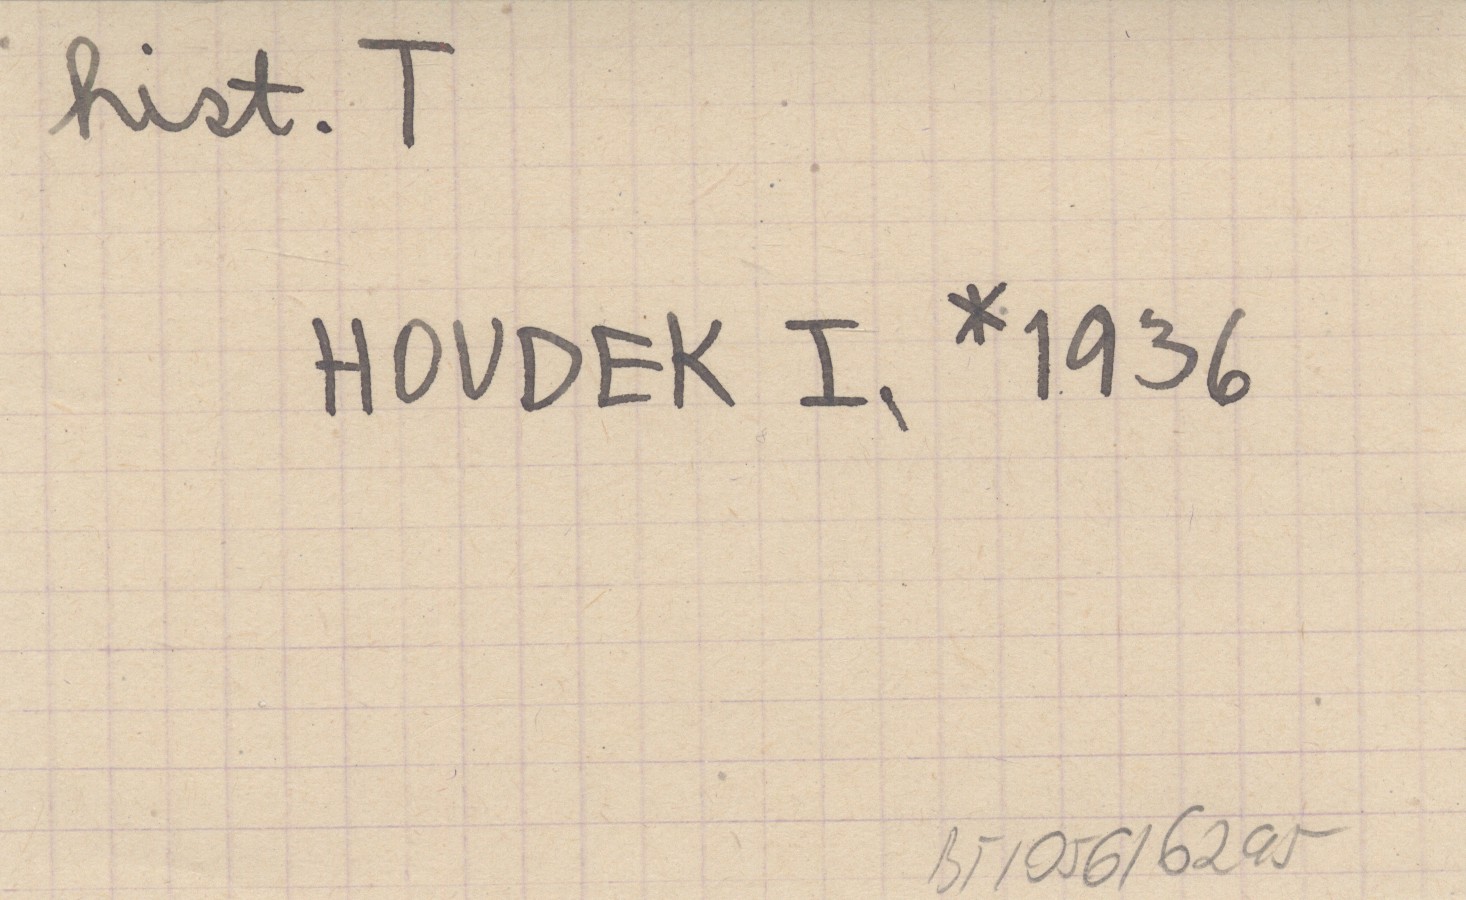 hist. T
HOUDEK I, *1936
BT/056/6295